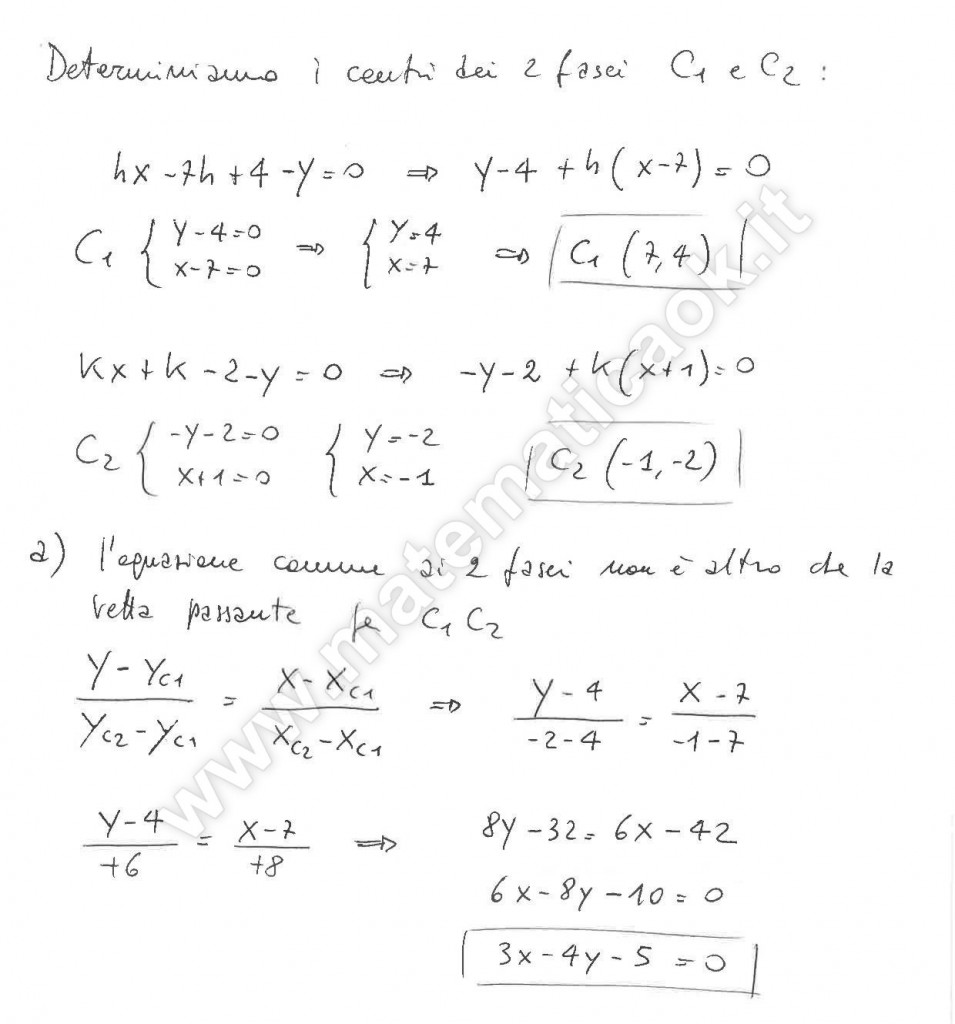 Determiniamo i centri dei 2 fasci C1 e C2 :
hx - 7h + 4 - y = 0 ⇒ y - 4 + h(x - 7) = 0
C1 { y - 4 = 0 x - 7 = 0 ⇒ { y = 4 x = 7 ⇒ C1 (7, 4)
kx + k - 2 - y = 0 ⇒ -y - 2 + k(x + 1) = 0
C2 { -y - 2 = 0 x + 1 = 0 { y = -2 x = -1 C2 (-1, -2)
a) l'equazione comune ai 2 fasci non è altro che la
retta passante per C1 C2
(y - yC1)/(yC2 - yC1) = (x - xC1)/(xC2 - xC1) ⇒ (y - 4)/(-2 - 4) = (x - 7)/(-1 - 7)
(y - 4)/(+6) = (x - 7)/(+8) ⇒ 8y - 32 = 6x - 42
6x - 8y - 10 = 0
3x - 4y - 5 = 0
www.matematicaok.it